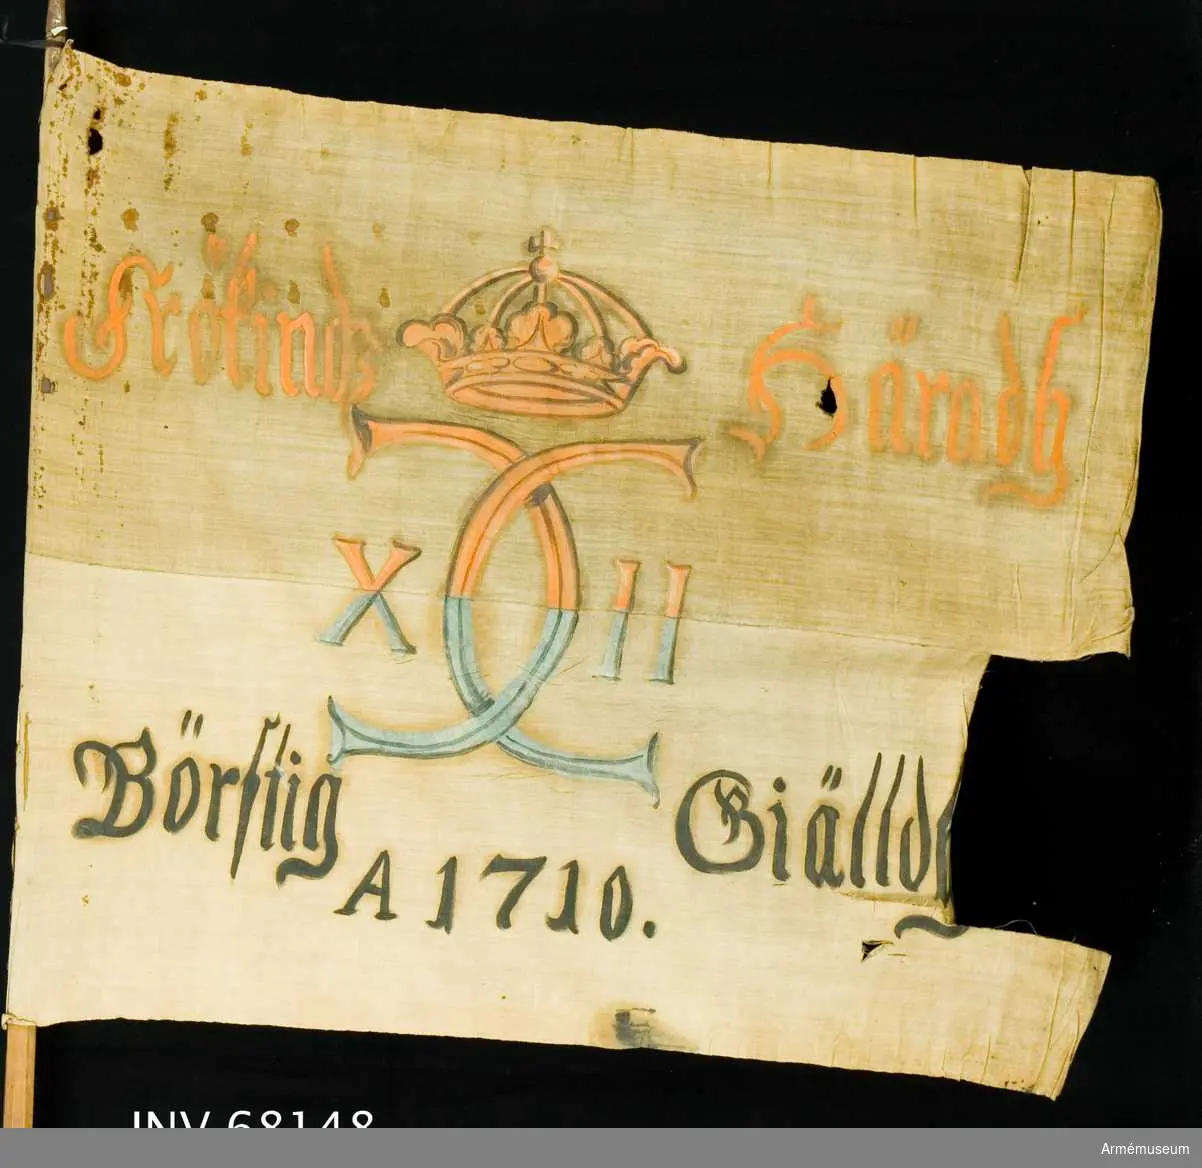 Frökindz Häradh
X II
Börstig Giälldh
A 1710.
INV 68148
Armémuseum